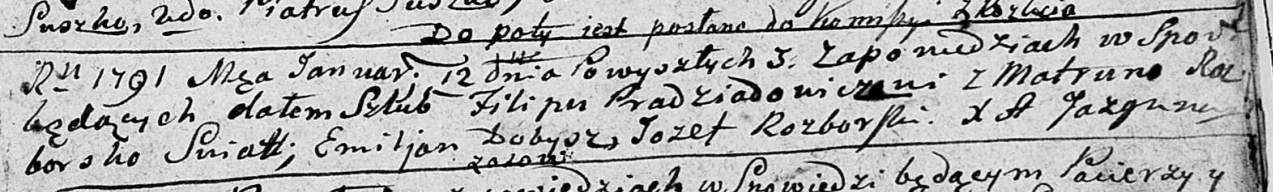 Suszko, udo. Piatruś Suszko
Do poty jest posłano do Komisyi
Ru 1791 Mca Januar. 12 dnia Po wyszłych 3. Zapowiedziach w Spow.
będących dałem Szlub Filipu Pradziadowiczowi z Matruno Roz.
borsko Swiatk; Emiljan Dobysz, Jozef Rozborski. X A Jazgunow
zapowiedziach w Spowiedzi będącym Pacierzy y